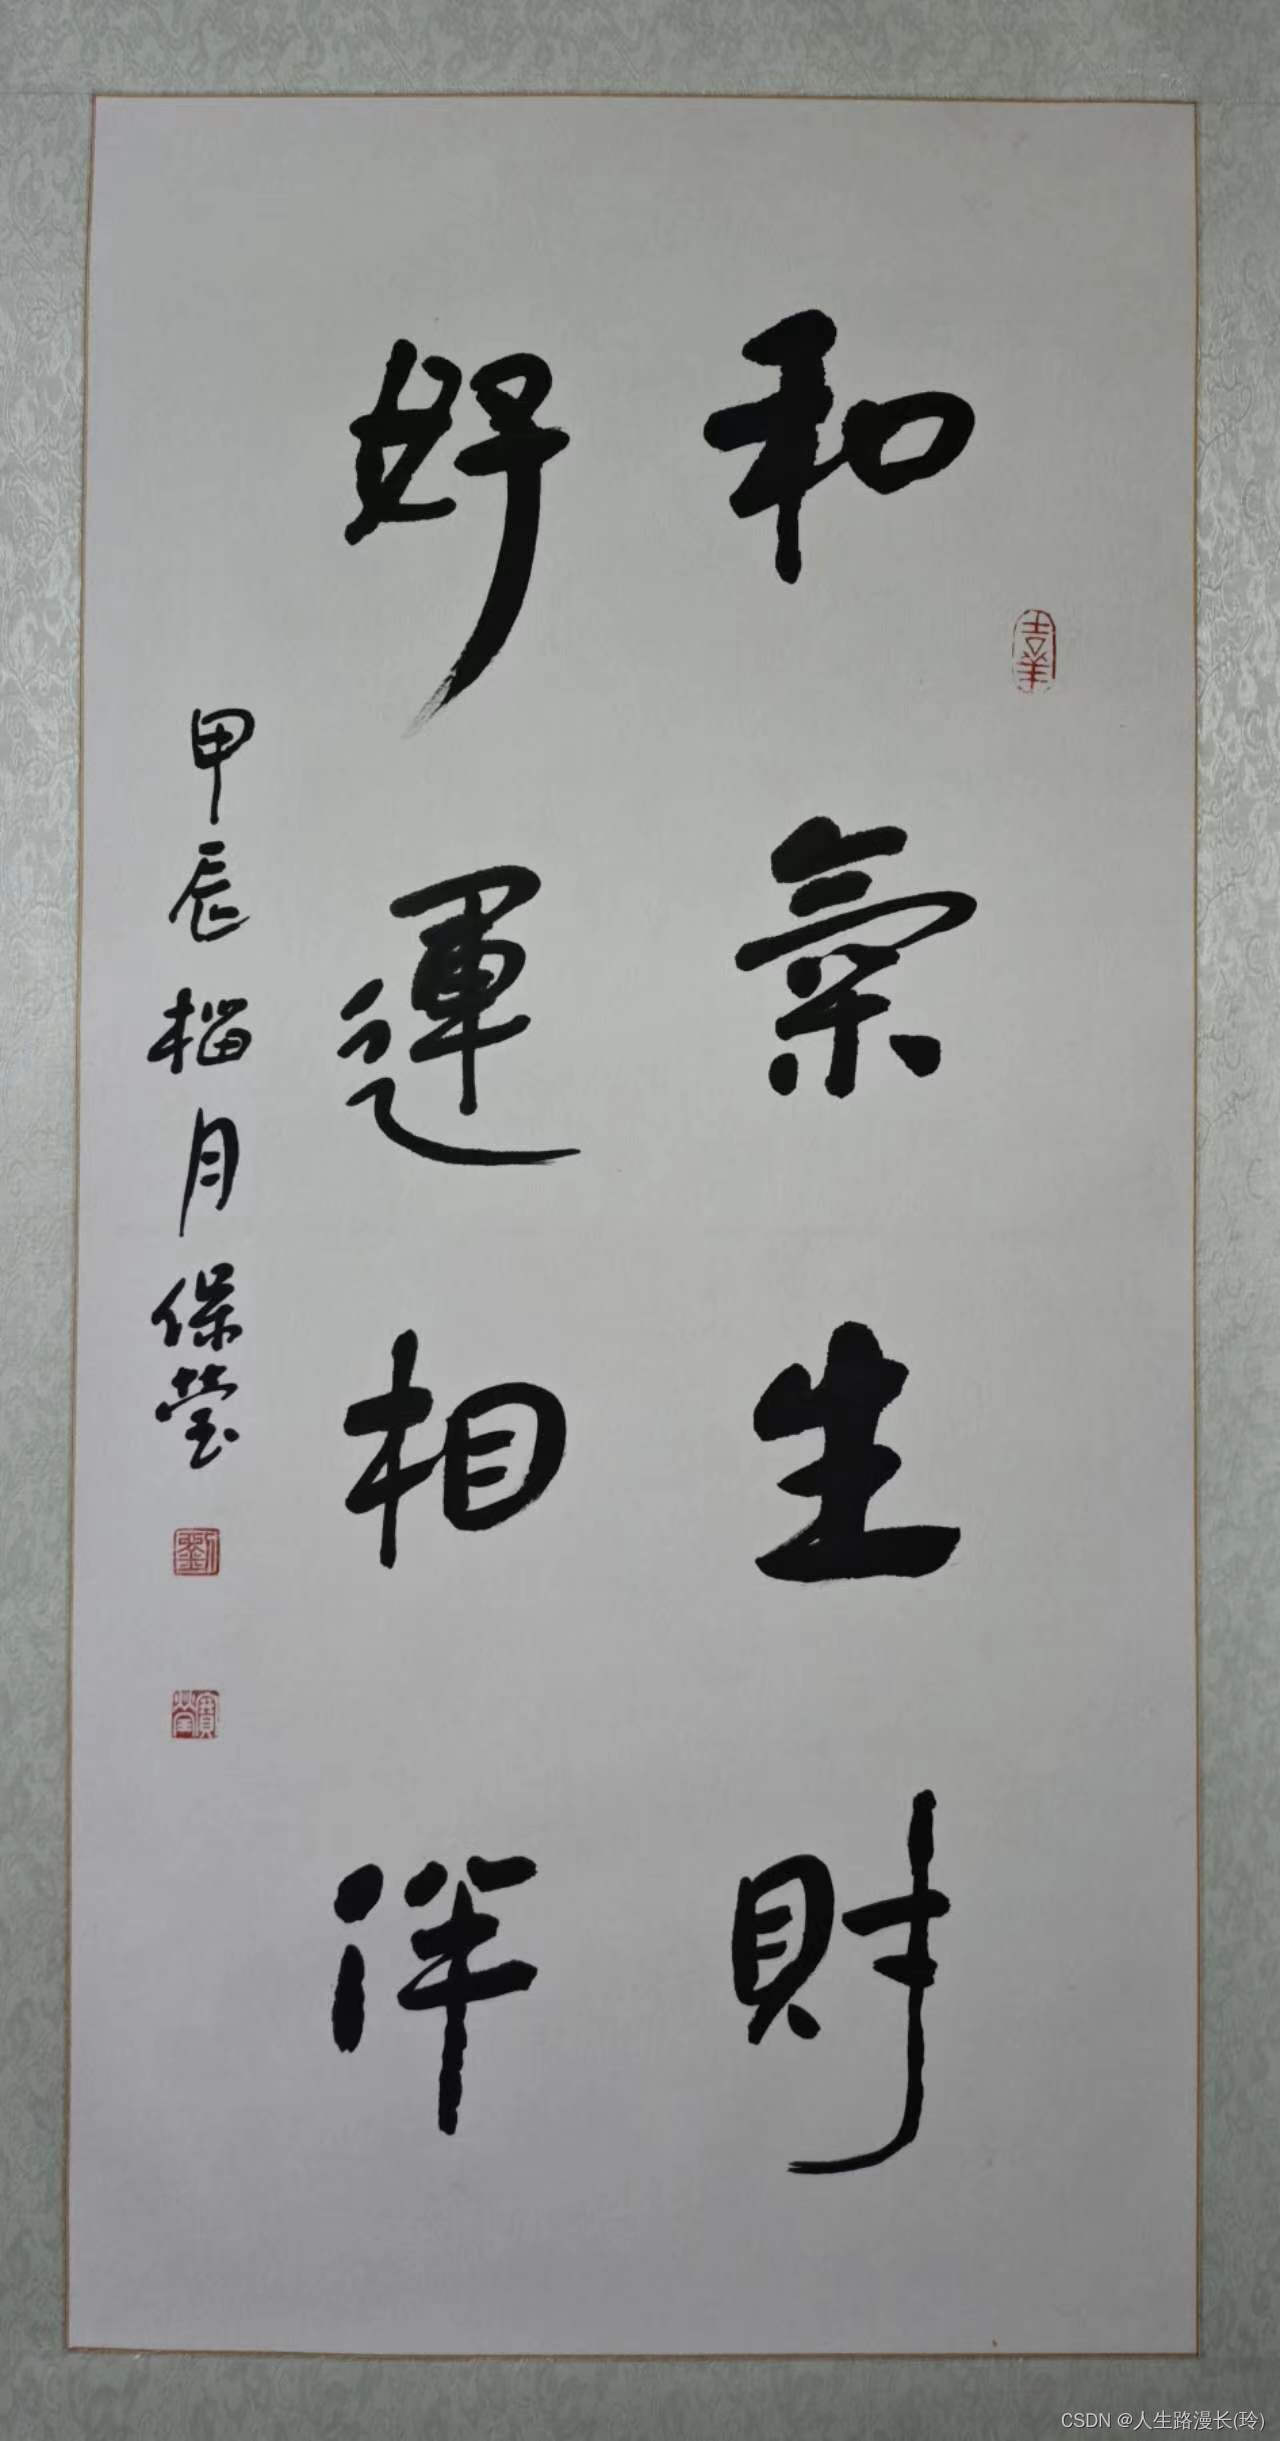 和氣生財
好運相伴
甲辰榴月保瑩
吉羊
劉
寶瑩
CSDN @人生路漫长(玲)